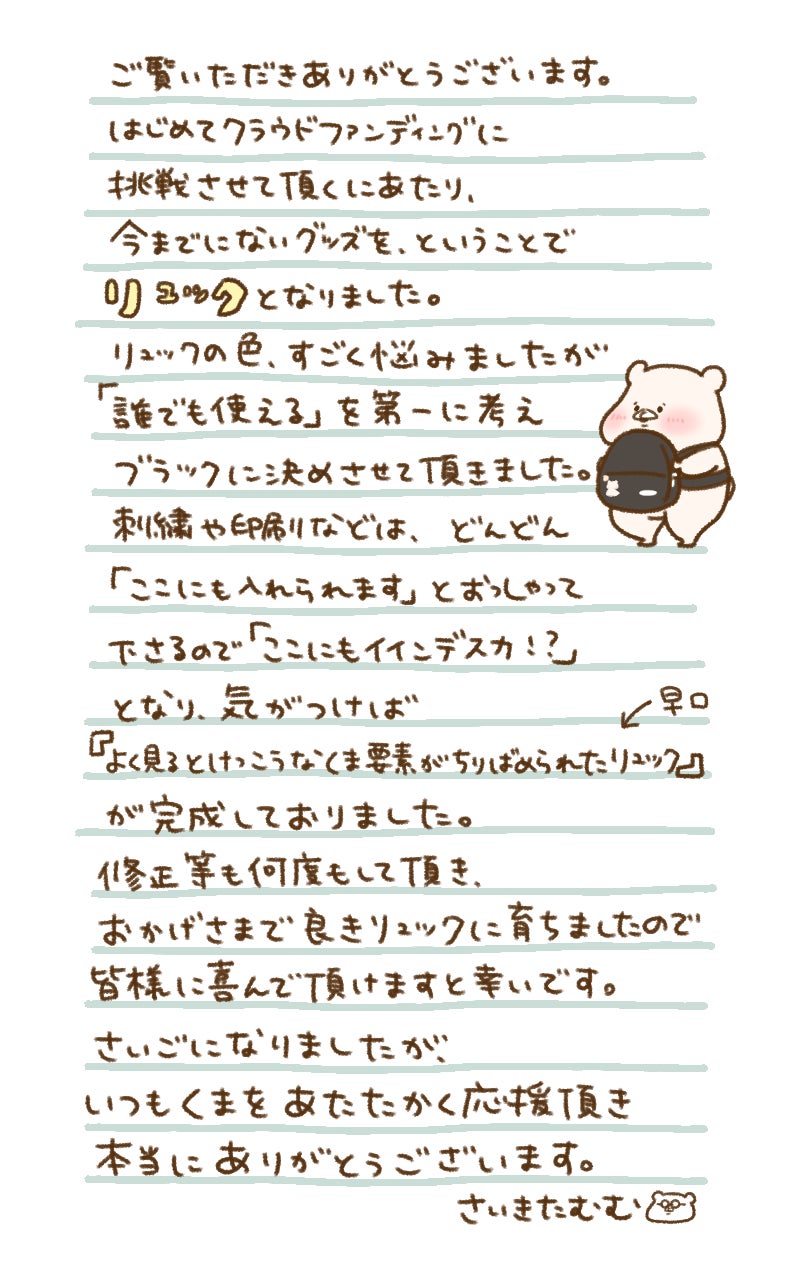 ご覧いただきありがとうございます。
はじめてクラウドファンディングに
挑戦させて頂くにあたり、
今までにないグッズを、ということで
リュックとなりました。
リュックの色、すごく悩みましたが
「誰でも使える」を第一に考え
ブラックに決めさせて頂きました。
刺繍や印刷などは、どんどん
「ここにも入れられます」とおっしゃって
下さるので「ここにもイインデスカ!?」
となり、気がつけば
早口
『よく見るとけっこうなくま要素がちりばめられたリュック』
が完成しておりました。
修正等も何度もして頂き、
おかげさまで良きリュックに育ちましたので
皆様に喜んで頂けますと幸いです。
さいごになりましたが、
いつもくまをあたたかく応援頂き
本当にありがとうございます。
さいきたむむ